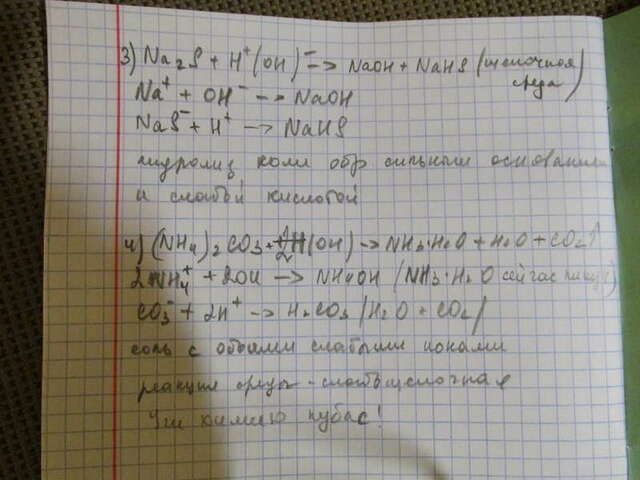 3) Na₂S + H⁺(OH)⁻ -> NaOH + NaHS (щелочная
среда)
Na⁺ + OH⁻ -> NaOH
NaS⁻ + H⁺ -> NaHS
гидролиз соли обр сильным основанием
и слабой кислотой
4) (NH₄)₂CO₃ + H(OH) -> NH₃·H₂O + H₂O + CO₂↑
2NH₄⁺ + 2OH -> NH₄OH (NH₃·H₂O сейчас пишут)
CO₃⁻ + 2H⁺ -> H₂CO₃ (H₂O + CO₂)
соль с обоими слабыми ионами
реакция среды - слабощелочная
Учи химию